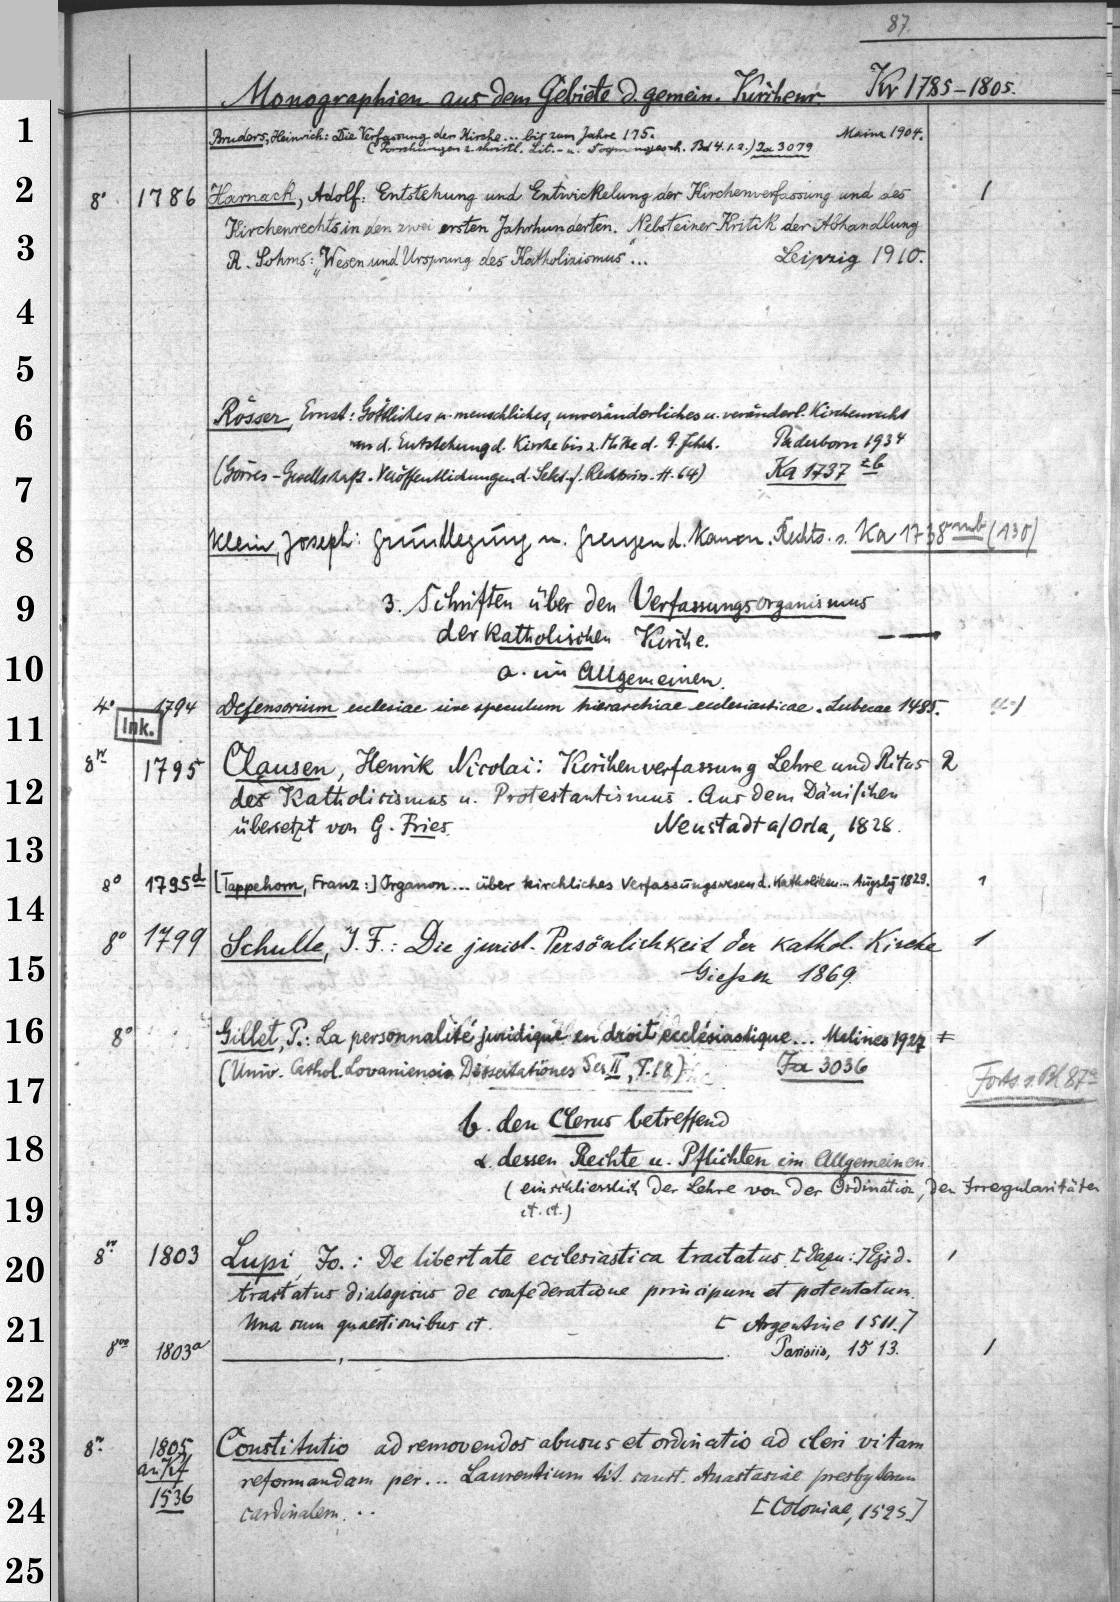 87.
Monographien aus dem Gebiete d. gemein. Kirchenr Kr 1785-1805.
1
Bruders, Heinrich: Die Verfassung der Kirche... bis zum Jahre 175. Mainz 1904.
(Forschungen z. christl. Lit.- u. Dogmengesch. Bd 4. 1. 2.) Ia 3079
2
8° 1786 Harnack, Adolf: Entstehung und Entwickelung der Kirchenverfassung und des 1
Kirchenrechts in den zwei ersten Jahrhunderten. Nebst einer Kritik der Abhandlung
3
R. Sohms: "Wesen und Ursprung des Katholizismus"... Leipzig 1910.
4
5
Rösser, Ernst: Göttliches u. menschliches, unveränderliches u. veränderl. Kirchenrecht
6
von d. Entstehung d. Kirche bis z. Mitte d. 9. Jhrh. Paderborn 1934
(Görres-Gesellschaft. Veröffentlichungen d. Sekt. f. Rechtswiss. H. 64) Ka 1737
7
Klein, Joseph: Grundlegung u. Grenzen d. Kanon. Rechts. s. Ka 1738 mb (130)
8
3. Schriften über den Verfassungsorganismus
9
der katholischen Kirche.
10
a. im Allgemeinen.
4° 1794 Defensorium ecclesiae sive speculum hierarchiae ecclesiasticae. Lubecae 1485.
11
Ink.
8° 1795 Clausen, Henrik Nicolai: Kirchenverfassung Lehre und Ritus 2
12
des Katholicismus u. Protestantismus. Aus dem Dänischen
übersetzt von G. Fries. Neustadt a/Orla, 1828.
13
8° 1795d [Tappehorn, Franz:] Organon... über kirchliches Verfassungswesen d. Katholiken... Augsbg 1829. 1
14
8° 1799 Schulte, J. F.: Die jurist. Persönlichkeit der kathol. Kirche 1
15
Giessen 1869.
16
8° Gillet, P.: La personnalité juridique en droit ecclésiastique... Malines 1927 ‡
(Univ. Cathol. Lovaniensis Dissertationes Ser II, T. 18) Ja 3036
17
Forts s. Bl 87a
b. den Clerus betreffend
18
α. dessen Rechte u. Pflichten im Allgemeinen.
(einschliesslich der Lehre von der Ordination, den Irregularitäten
19
et. ct.)
8° 1803 Lupi, Jo.: De libertate ecclesiastica tractatus. 1
20
tractatus dialogicus de confederatione principum et potentatum.
Una cum quaestionibus ct. [Argentine 1511.]
21
8vo 1803a ———, ———. Parisiis, 1513. 1
22
8° 1805 Constitutio ad removendos abusus et ordinatio ad cleri vitam
23
an Kf reformandam per... Laurentium tit. sanct. Anastasiae presbyterum
1536 cardinalem... [Coloniae, 1525.]
24
25